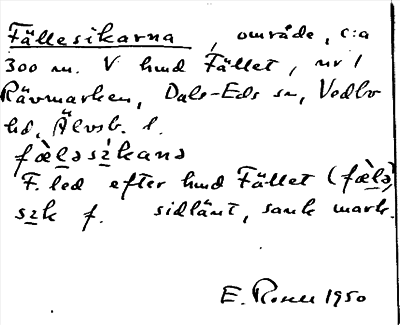 Fällesikarna, område, c:a
300 m. V hmd Fället, nr 1
Rävmarken, Dals-Eds sn, Vedbo
hd, Älvsb. l.
fæ̀ləsìkanə
F. led efter hmd Fället (fæ̀lə)
szk f. sidlänt, sank mark.
E. Rosell 1950